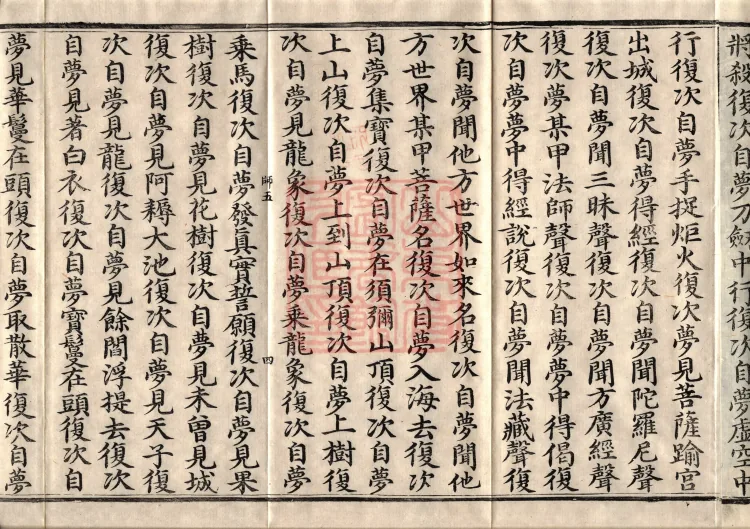 將殺復次自夢刀劔中行復次自夢虛空中
行復次自夢手捉炬火復次夢見菩薩踰宮
出城復次自夢得經復次自夢聞陀羅尼聲
復次自夢聞三昧聲復次自夢聞方廣經聲
復次夢某甲法師聲復次自夢夢中得偈復
次自夢夢中得經說復次自夢聞法藏聲復
次自夢聞他方世界如來名復次自夢聞他
方世界某甲菩薩名復次自夢入海去復次
自夢集寶復次自夢在須彌山頂復次自夢
上山復次自夢上到山頂復次自夢上樹復
次自夢見龍象復次自夢乘龍象復次自夢
師五
四
乘馬復次自夢發真實誓願復次自夢見果
樹復次自夢見花樹復次自夢見未曾見城
復次自夢見阿耨大池復次自夢見天子復
次自夢見龍復次自夢見餘閻浮提去復次
自夢見著白衣復次自夢寶鬘在頭復次自
夢見華鬘在頭復次自夢取散華復次自夢